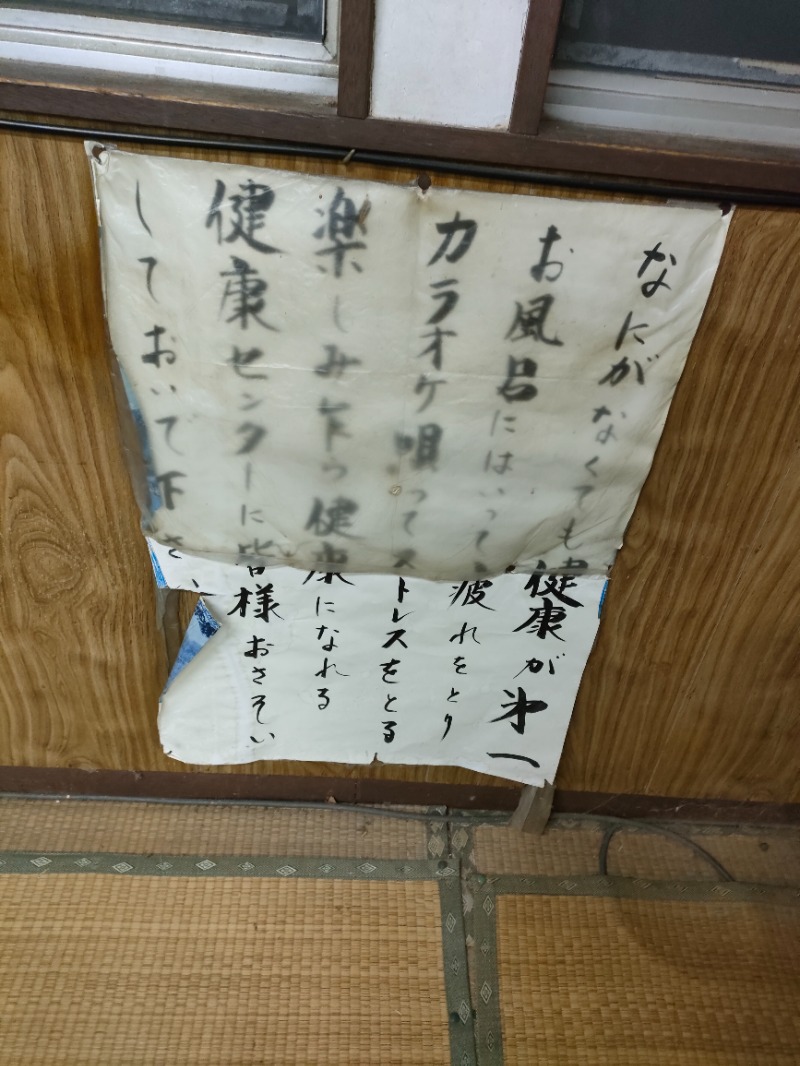 なにがなくても健康が㐧一
お風呂にはいって疲れをとり
カラオケ唄ってストレスをとる
楽しみ乍ら健康になれる
健康センターに皆様おさそい
しておいで下さい